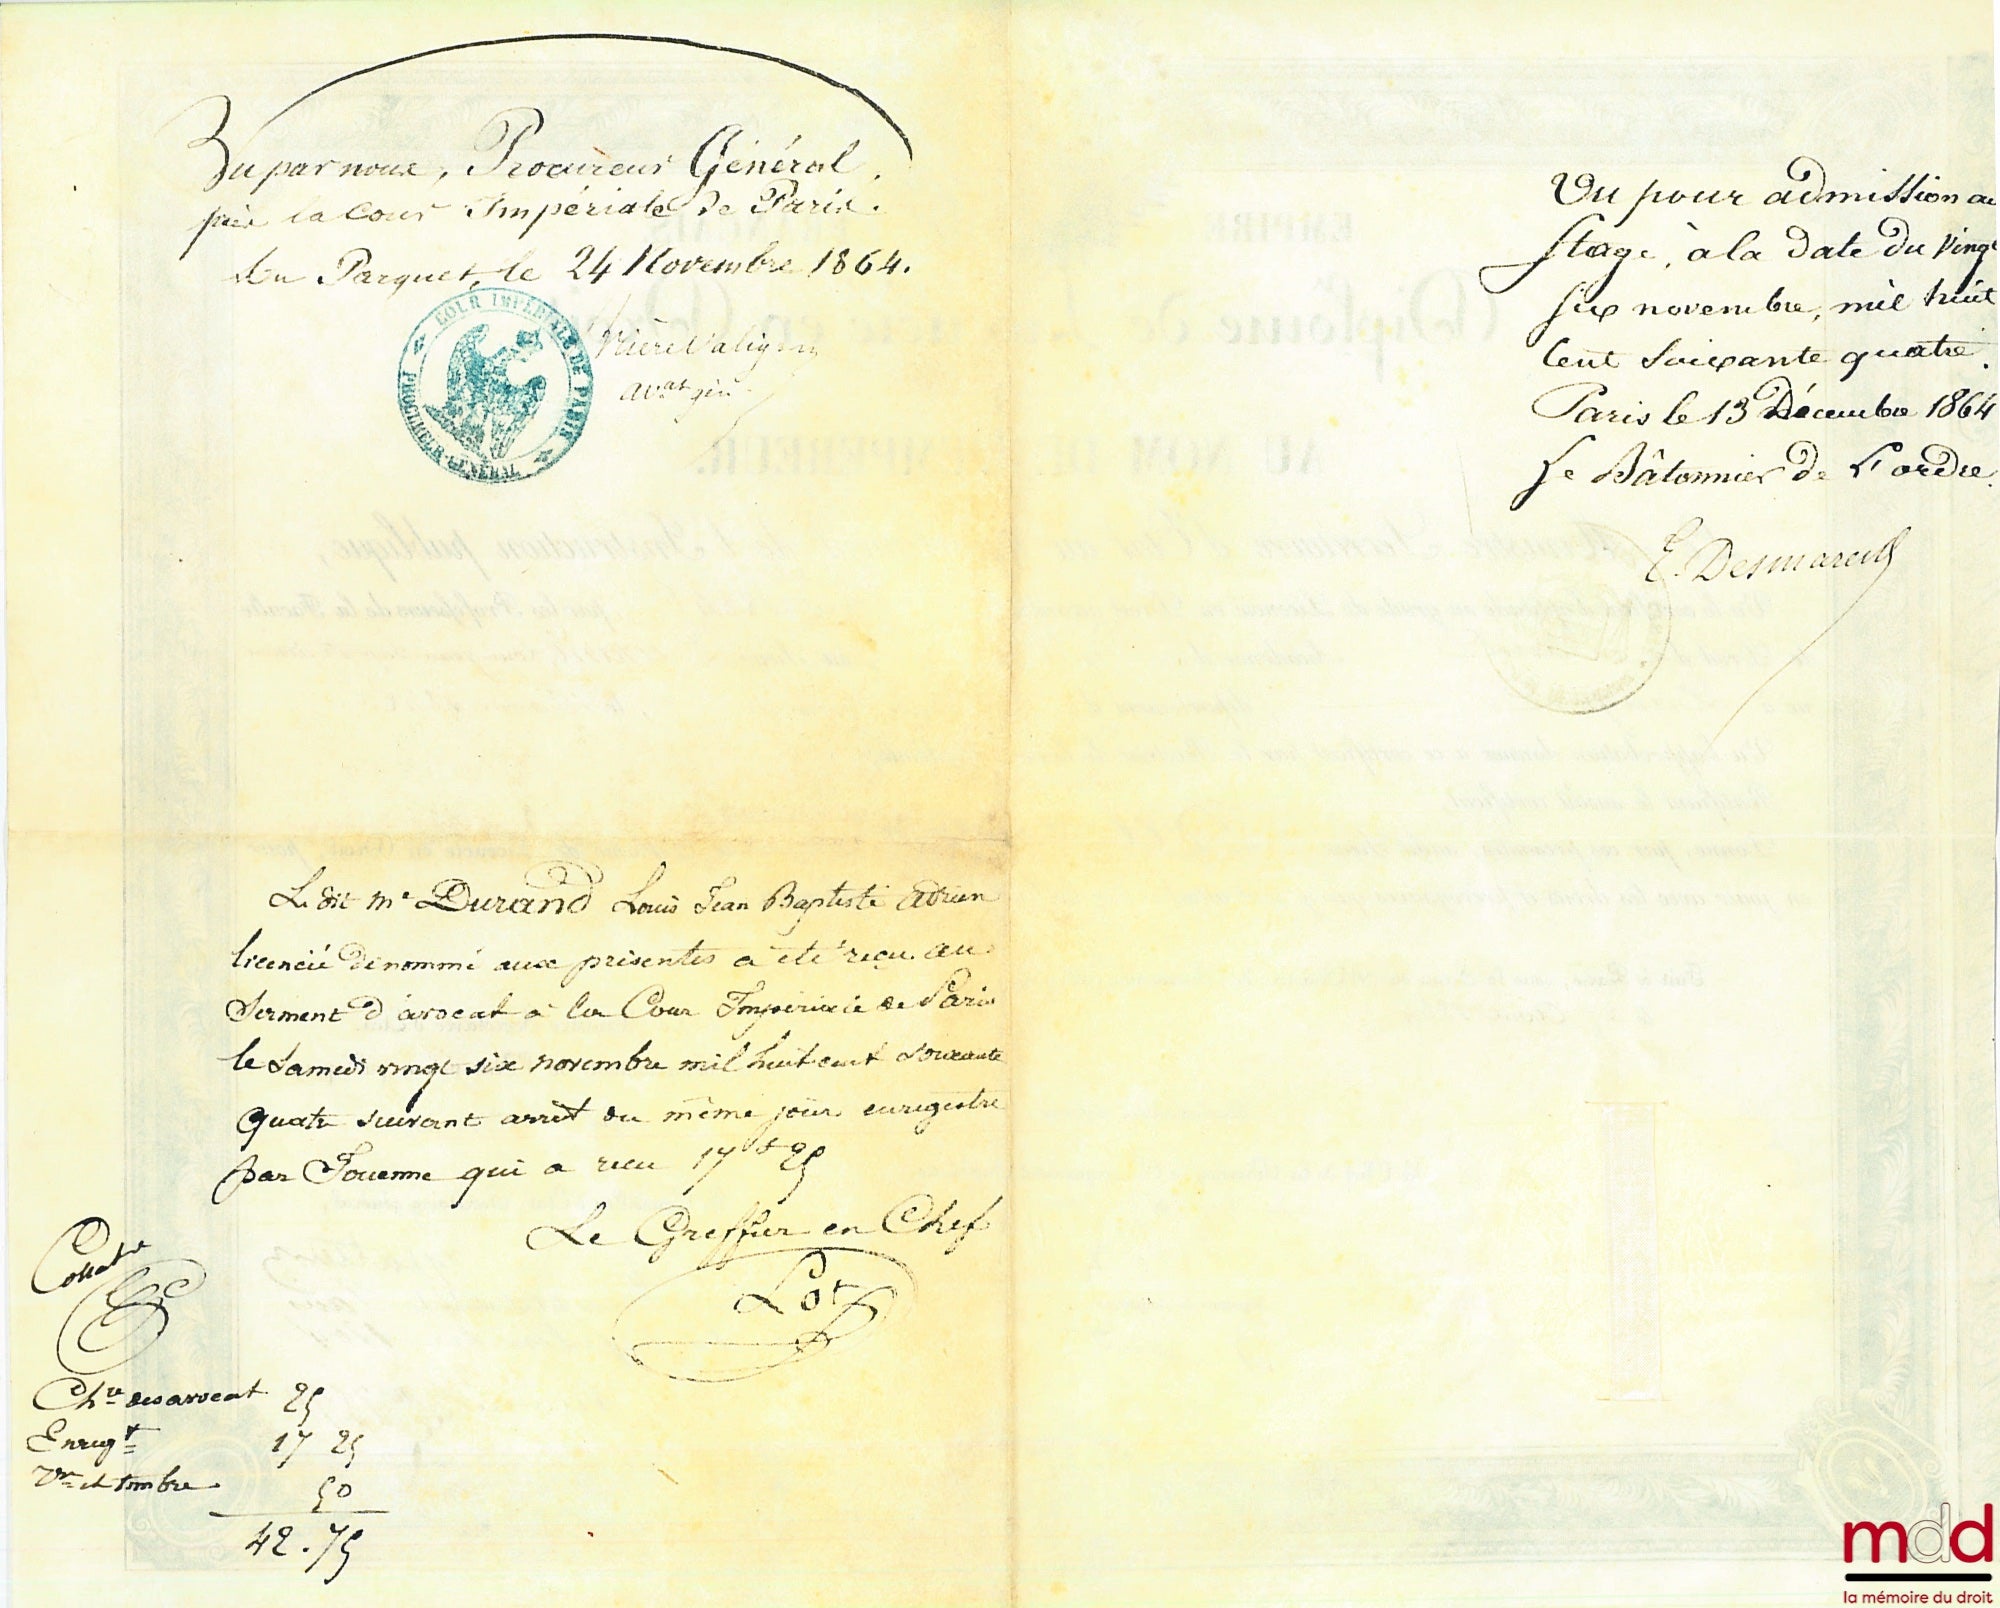 Vu par nous, Procureur Général
près la Cour Impériale de Paris.
Au Parquet, le 24 Novembre 1864.
COUR IMPÉRIALE DE PARIS
PROCUREUR-GÉNÉRAL
av.at gén.
Vu pour admission au
Stage, à la date du vingt
six novembre, mil huit
cent soixante quatre.
Paris le 13 Décembre 1864
Le Bâtonnier de l'ordre.
E. Desmarest
Le dit Me Durand Louis Jean Baptiste Adrien
licencié dénommé aux présentes a été reçu au
Serment d'avocat à la Cour Impériale de Paris
le Samedi vingt six novembre mil huit cent soixante
quatre suivant arrêt du même jour enregistré
par Jouenne qui a reçu 17 f 25
Le Greffier en Chef
Lot
Chre des avocat 25
Enregt 17 25
et timbre 50
42.75
mdd
la mémoire du droit